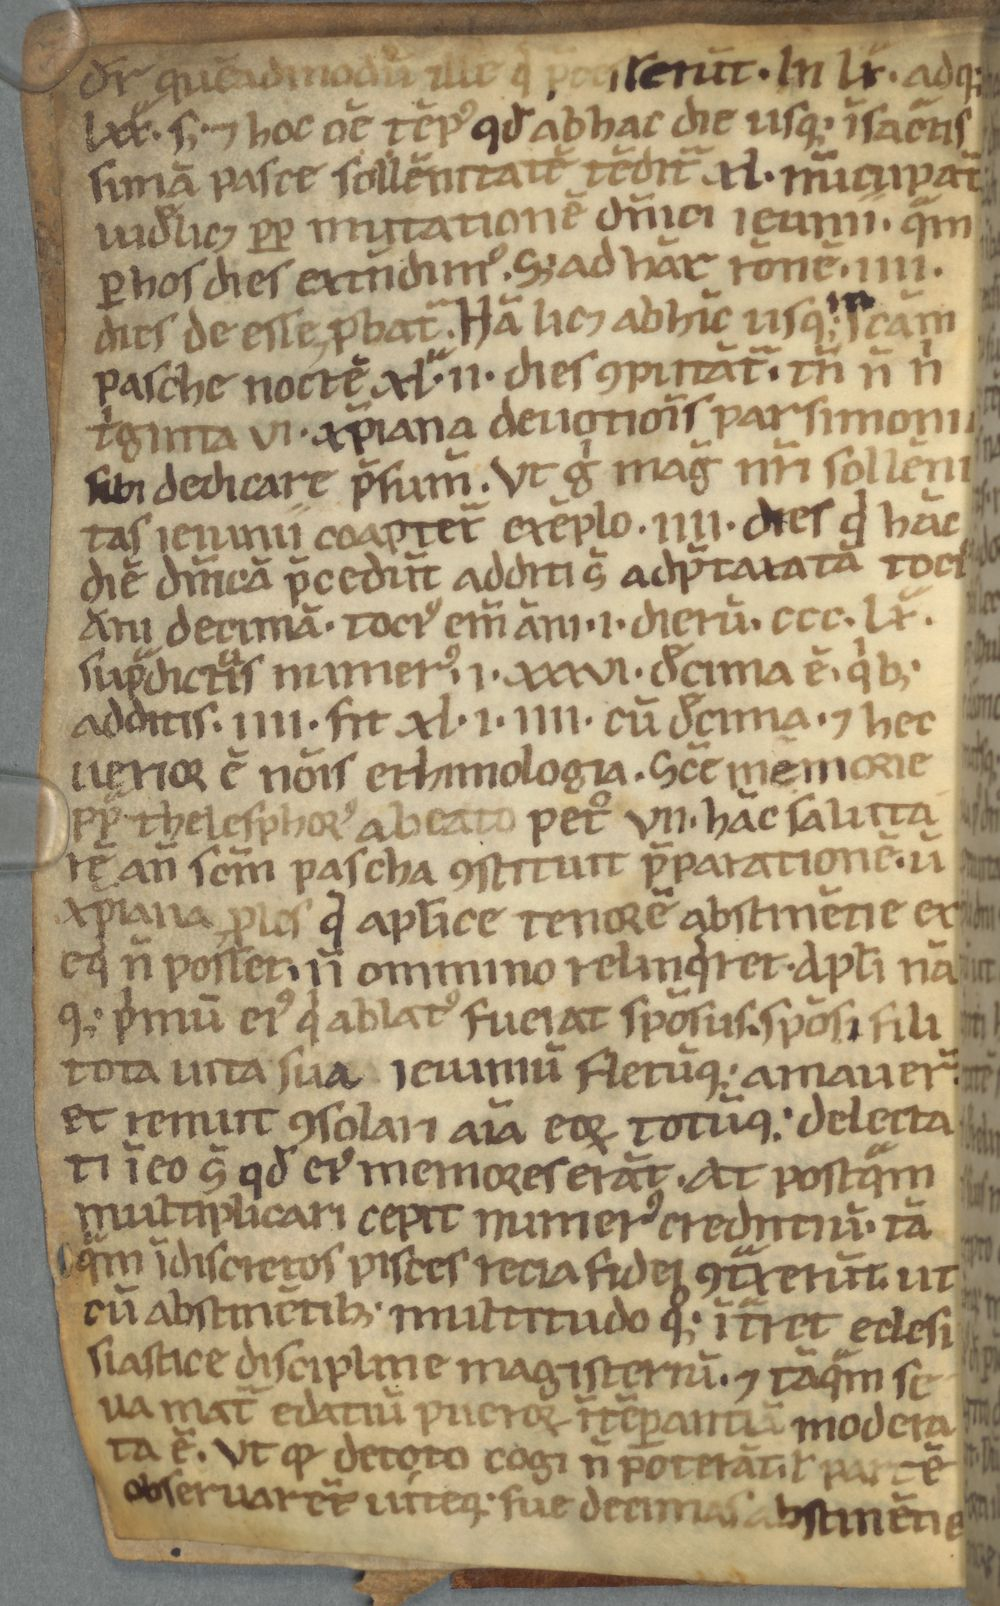 dr̄ quēadmodū ille q̄ p̄cesserunt. In lx. adq;
lxx. s; ⁊ hoc oē tēp⁹ qđ ab hac die usq; ī sāctis
simā pasce sollēnitatē tēdit̄ xl. nūcupat̄
uidl̄icꝫ ꝓp̄ imitationē dn̄ici ieiunii. qm̄
ꝑ hos dies extēdim⁹. S; ad hāc rōnē. iiii.
dies de esse ꝓbat̄. Hā licꝫ ab hīc usq; in scām
pasche noctē xl. ii. dies ꝯputāt̄. tn̄ n̄ ni
tͥginta vi. xp̄iana deuotiōis parsimonia
sibi dedicare p̄sum̄. Vt gͥ maḡ nr̄i sollēni
tas ieiunii coaptet̄ exēplo. iiii. dies q̄ hāc
diē dn̄icā p̄cedūt additi s̄ ad p̄taxatā toci⁹
āni decimā. toci⁹ em̄ āni .i. dierū. ccc. lx.
sup̄dictis numer⁹ .i. xxxvi. đcima ē. qͥb;
additis. iiii. fit xl. i. iiii. cū đcima. ⁊ hec
uerior ē nōis ethimologia. Scē memorie
pp̄ thelesphor⁹ a beato petº vii. hāc saluta
rē an̄ scm̄ pascha ꝯstituit p̄parationē. ū
xp̄iana ꝓles q̄ apl̄ice tenorē abstinētie ex
eq̄ n̄ posset, n̄ ommino relinq̄ret. Apl̄i nā
q; p̄mū ei⁹ q̄ ablat⁹ fuerat spōsus. spōsi fili
tota uita sua ieiuniū fletūq; amauer̄.
et renuit ꝯsolari aīa eoꝝ totūq; delecta
ti ī eo s̄ qđ ei⁹ memores erāt. At postq̄m
multiplicari cepit numer⁹ credentiū. tā
q̄m īdiscretos pisces recia fidei ꝯtͣxerūt. ut
cū abstinētib; multitudo qͦ; ītͣret eclesi
siastice discipline magisteriū. ⁊ tāq̄m se
ua mat̄ edatiū pueroꝝ ītēꝑantiā modera
ta ē. Vt qͥ de toto cogi n̄ poterāt. ł partē
obseruarēt̄ uiteq; sue decimas abstinētie